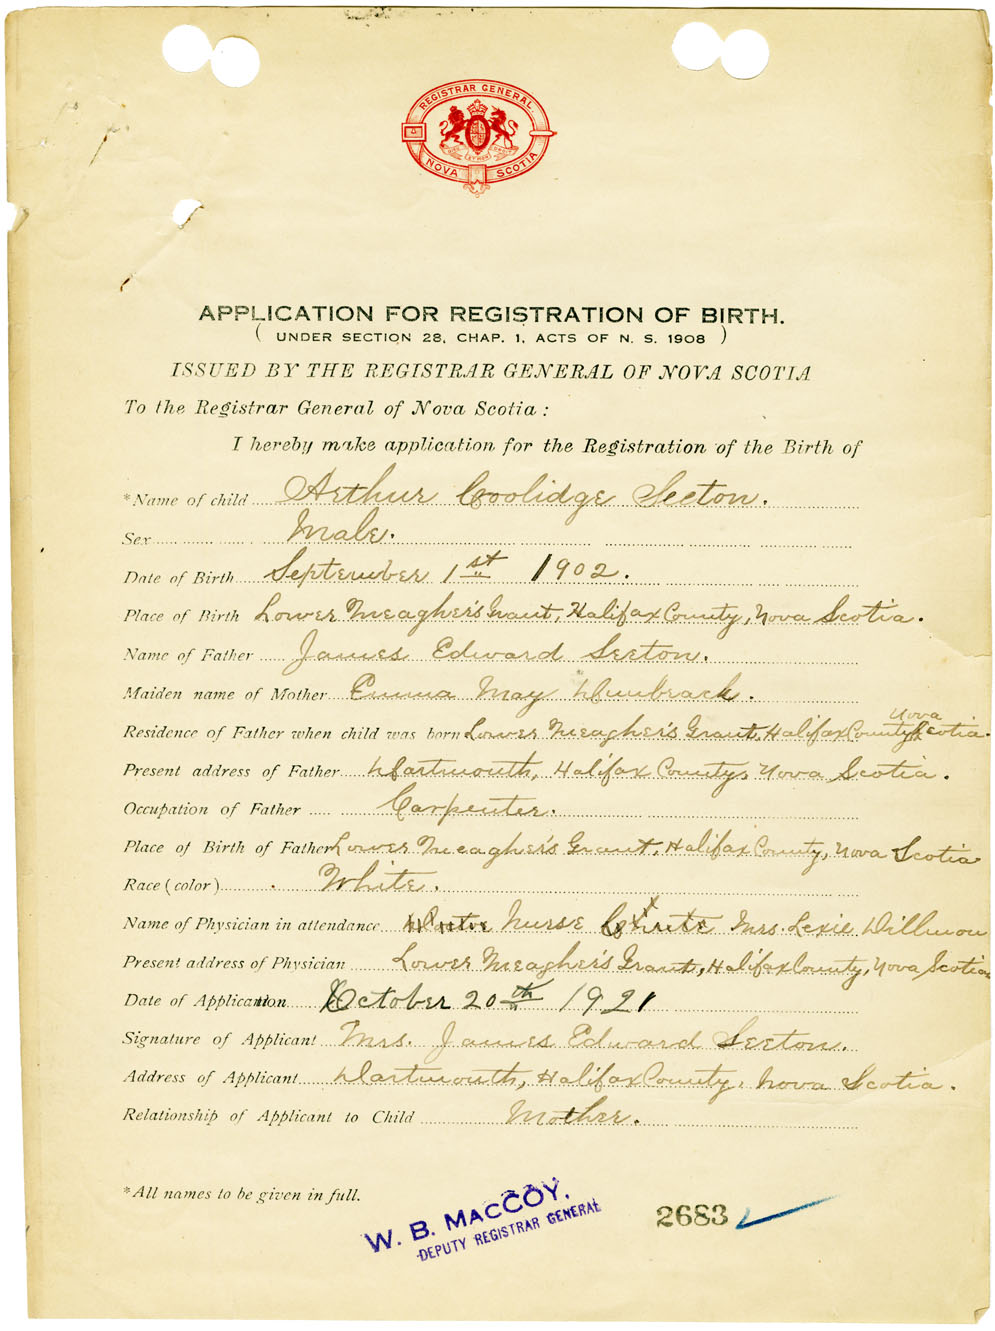 REGISTRAR GENERAL
NOVA SCOTIA
APPLICATION FOR REGISTRATION OF BIRTH.
( UNDER SECTION 28, CHAP. 1, ACTS OF N. S. 1908 )
ISSUED BY THE REGISTRAR GENERAL OF NOVA SCOTIA
To the Registrar General of Nova Scotia :
I hereby make application for the Registration of the Birth of
*Name of child Arthur Coolidge Seeton.
Sex Male.
Date of Birth September 1st 1902.
Place of Birth Lower Meagher's Grant, Halifax County, Nova Scotia.
Name of Father James Edward Seeton.
Maiden name of Mother Emma May Dumbrack.
Residence of Father when child was born Lower Meagher's Grant, Halifax County Nova Scotia.
Present address of Father Dartmouth, Halifax County, Nova Scotia.
Occupation of Father Carpenter.
Place of Birth of Father Lower Meagher's Grant, Halifax County, Nova Scotia
Race (color) White.
Name of Physician in attendance Nurse Mrs. Lexie Dillmon
Present address of Physician Lower Meagher's Grant, Halifax County, Nova Scotia
Date of Application October 20th 1921
Signature of Applicant Mrs. James Edward Seeton.
Address of Applicant Dartmouth, Halifax County, Nova Scotia.
Relationship of Applicant to Child Mother.
*All names to be given in full.
W. B. MACCOY,
DEPUTY REGISTRAR GENERAL
2683